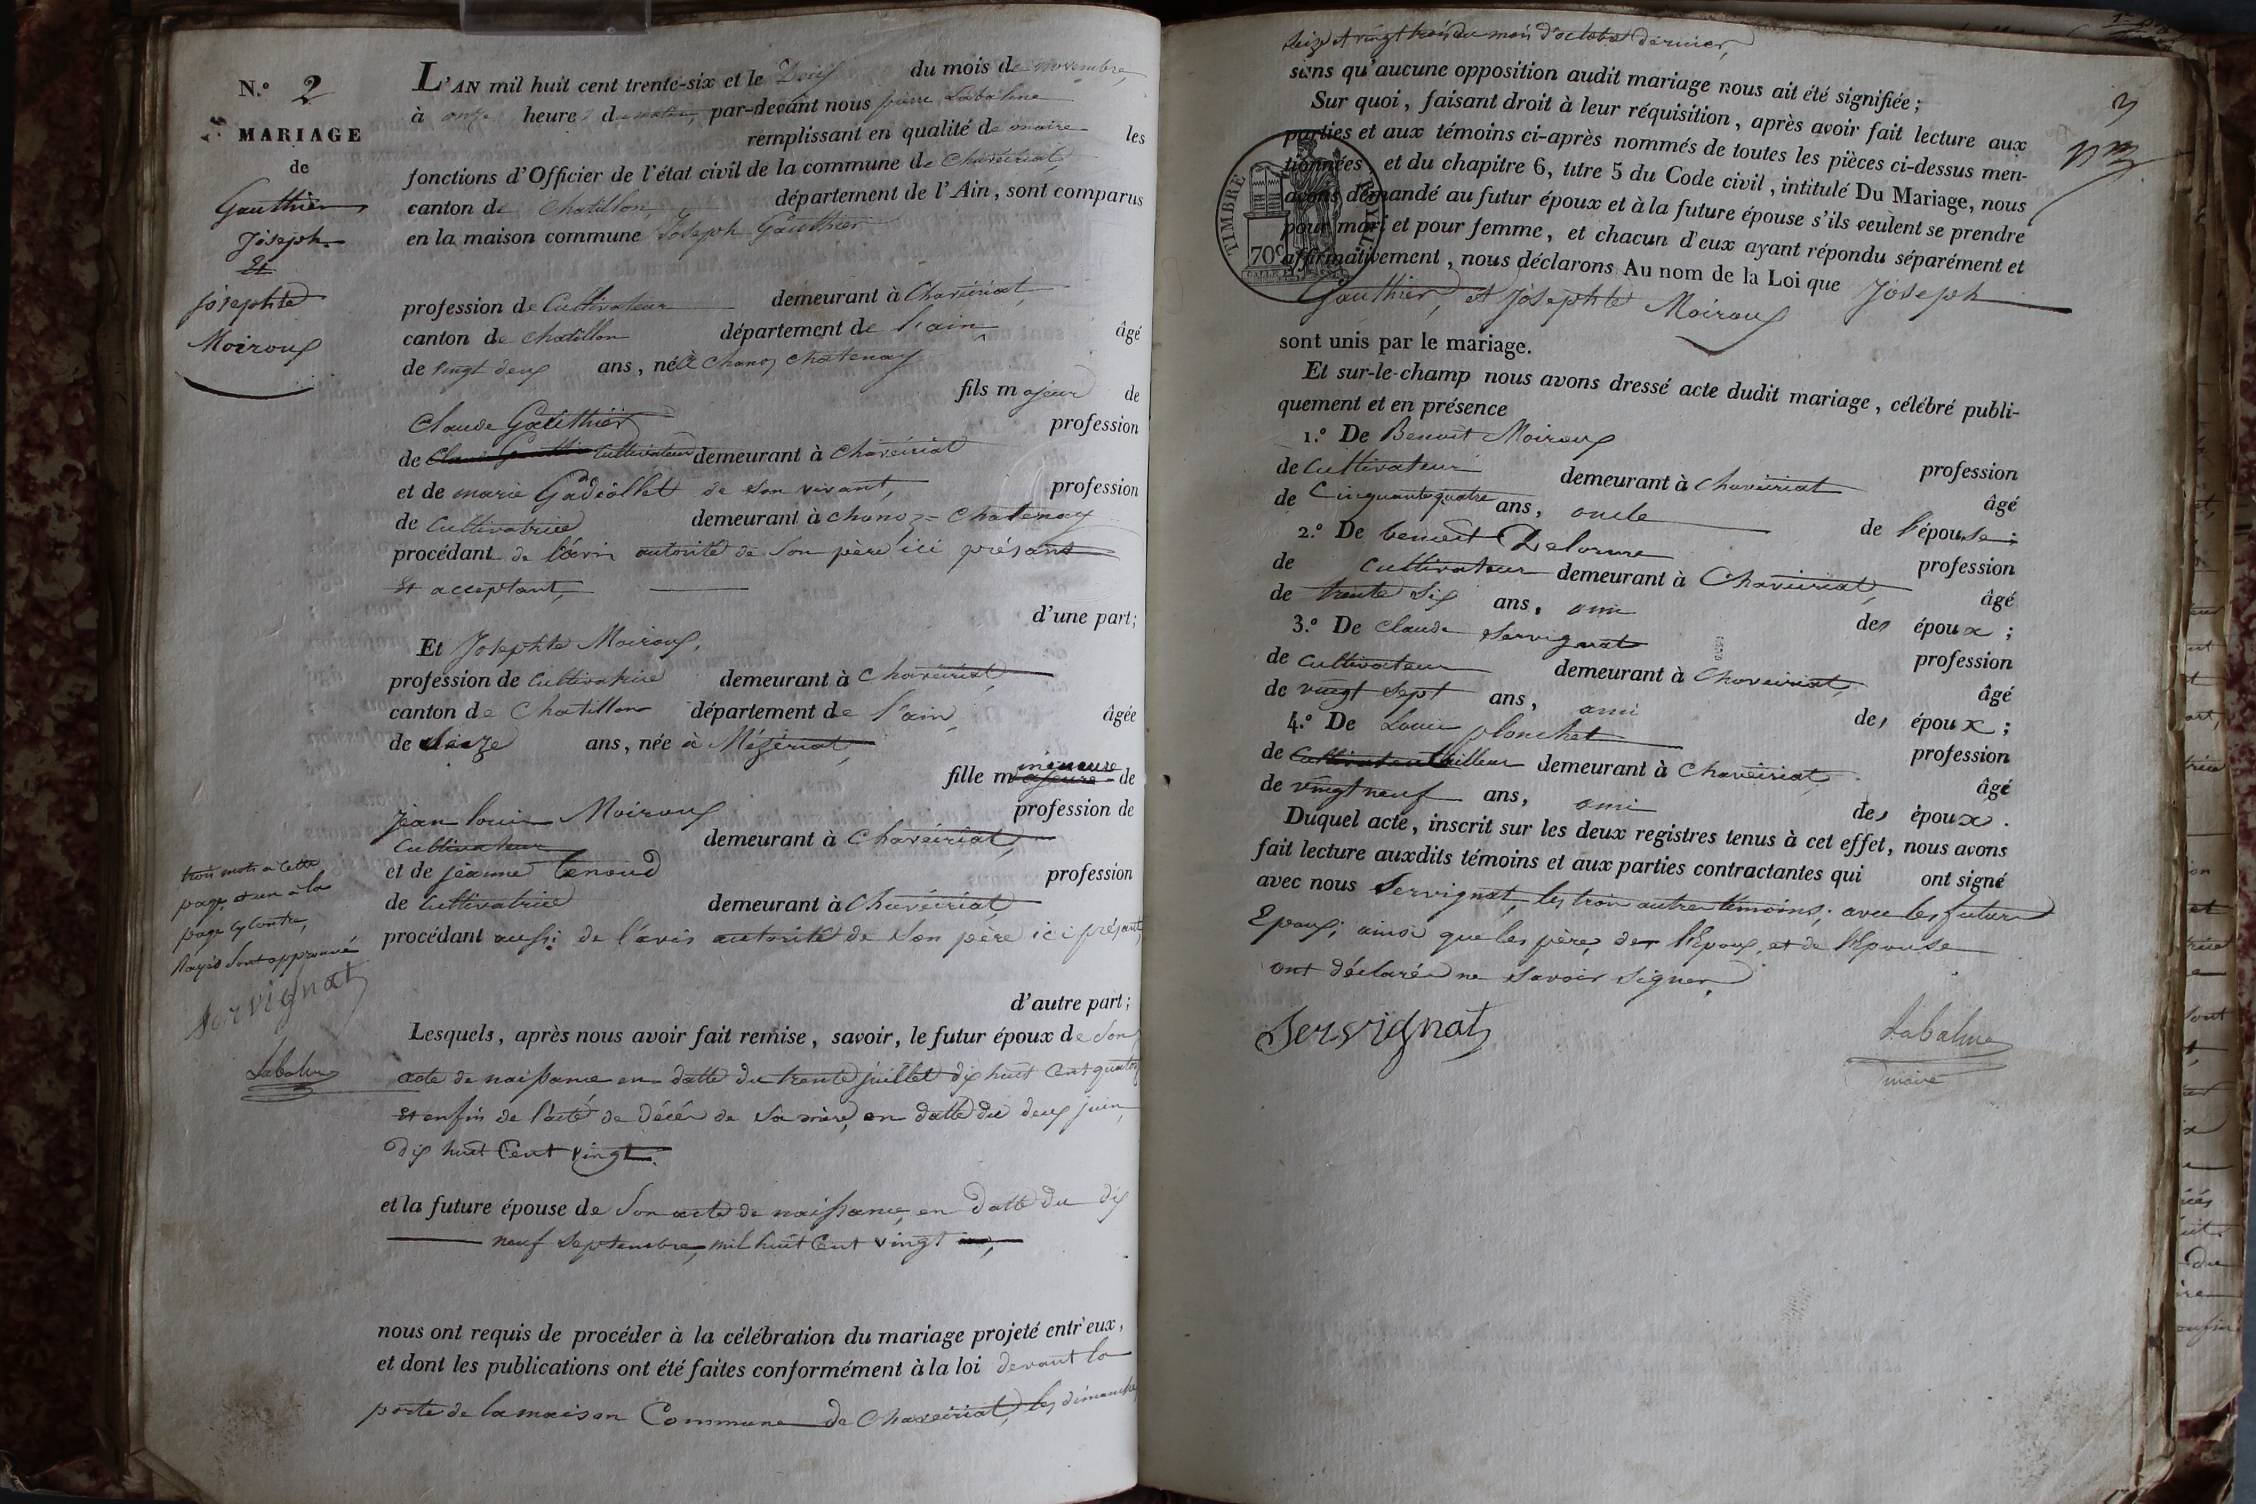 N.º 2
MARIAGE
de
Gauthier
Joseph
Et
josephte
Moiroux
L'AN mil huit cent trente-six et le Deux du mois de novembre,
à onze heures du matin, par-devant nous pierre Labalme
remplissant en qualité de maire les
fonctions d'Officier de l'état civil de la commune de Chaveiriat,
canton de Chatillon, département de l'Ain, sont comparus
en la maison commune Joseph Gauthier
profession de Cultivateur demeurant à Chaveiriat,
canton de Chatillon département de l'ain, âgé
de vingt deux ans, né à Chanoz Chatenay
fils majeur de
Claude Gauthier profession
de Claude Gauthier Cultivateur demeurant à Chaveiriat
et de marie Gadiollet de son vivant, profession
de Cultivatrice demeurant à Chanoz=Chatenay
procédant de l'avis autorité de son père ici présant
Et acceptant,
d'une part;
Et Josephte Moiroux,
profession de Cultivatrice demeurant à Chaveiriat,
canton de Chatillon département de l'ain, âgée
de seize ans, née à Mézeriat,
fille majeure mineure de
jean louis Moiroux profession de
Cultivateur demeurant à Chaveiriat,
et de jeanne Tenoud profession
de Cultivatrice demeurant à Chaveiriat,
procédant aussi de l'avis autorité de son père ici présant,
d'autre part;
trois mots à cette
page, et un à la
page cy contre,
Rayés sont approuvé
Servignat
Labalme
Lesquels, après nous avoir fait remise, savoir, le futur époux de son
acte de naissance en datte du trente juillet dix huit Cent quatorze
Et enfin de l'acte de décés de sa mère, en datte du deux juin,
dix huit Cent vingt.
et la future épouse de son acte de naissance, en datte du dix
neuf septembre, mil huit Cent vingt
nous ont requis de procéder à la célébration du mariage projeté entr'eux,
et dont les publications ont été faites conformément à la loi devant la
porte de la maison Commune de Chaveiriat, les dimanche
seize et vingt trois du mois d'octobre dernier,
sans qu'aucune opposition audit mariage nous ait été signifiée;
Sur quoi, faisant droit à leur réquisition, après avoir fait lecture aux
parties et aux témoins ci-après nommés de toutes les pièces ci-dessus men-
tionnées, et du chapitre 6, titre 5 du Code civil, intitulé Du Mariage, nous
avons demandé au futur époux et à la future épouse s'ils veulent se prendre
pour mari et pour femme, et chacun d'eux ayant répondu séparément et
affirmativement, nous déclarons Au nom de la Loi que Joseph
Gauthier, et Josephte Moiroux
sont unis par le mariage.
TIMBRE ROYAL
70c
3
Et sur-le-champ nous avons dressé acte dudit mariage, célébré publi-
quement et en présence
1.º De Benoit Moiroux profession
de Cultivateur demeurant à Chaveiriat âgé
de Cinquante quatre ans, oncle de l'épouse;
2.º De benoit Delorme profession
de Cultivateur demeurant à Chaveiriat, âgé
de trente six ans, ami des époux;
3.º De Claude Servignat profession
de Cultivateur demeurant à Chaveiriat, âgé
de vingt sept ans, ami des époux;
4.º De Louis planchet profession
de Cultivateur tailleur demeurant à Chaveiriat, âgé
de vingt neuf ans, ami des époux.
Duquel acte, inscrit sur les deux registres tenus à cet effet, nous avons
fait lecture auxdits témoins et aux parties contractantes qui ont signé
avec nous Servignat, les trois autres témoins, avec les futurs
Epoux, ainsi que les pères, de l'Epoux, et de l'Epouse
ont déclarés ne savoir signer,
Servignat
Labalme
maire